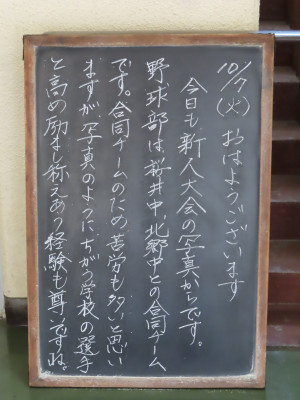 10/7(火) おはようございます
今日も新人大会の写真からです。
野球部は、桜井中、北郷中との合同チーム
です。合同チームのため苦労も多いと思い
ますが、写真のように、ちがう学校の選手
と高め励まし称えあう経験も尊いですね。